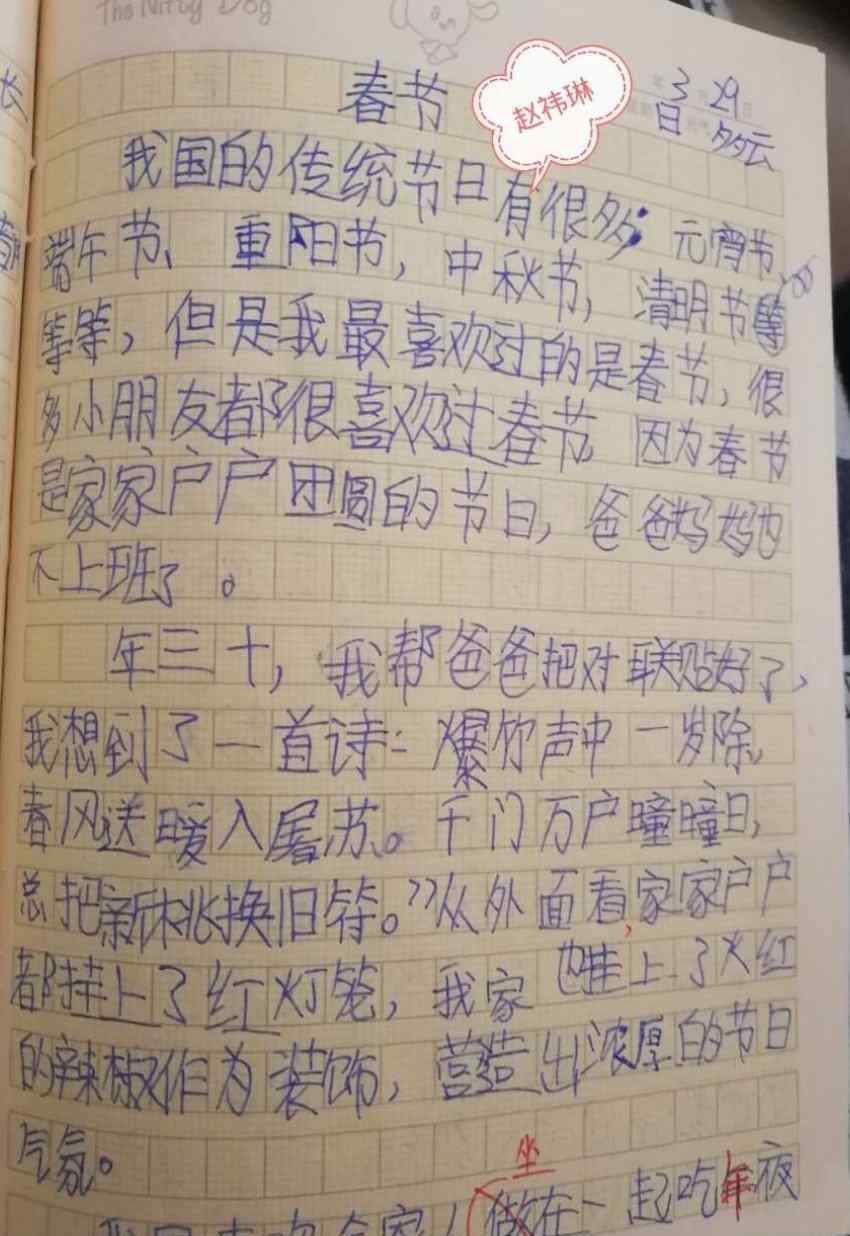 The Nifty Dog
赵祎琳
春节
3 29
日 多云
我国的传统节日有很多：元宵节、
端午节、重阳节，中秋节，清明节等
等等，但是我最喜欢过的是春节，很
多小朋友都很喜欢过春节，因为春节
是家家户户团圆的节日，爸爸妈妈也
不上班了。
年三十，我帮爸爸把对联贴好了，
我想到了一首诗：爆竹声中一岁除，
春风送暖入屠苏。千门万户曈曈日，
总把新桃换旧符。”从外面看，家家户户
都挂上了红灯笼，我家也挂上了火红
的辣椒作为装饰，营造出浓厚的节日
气氛。
坐
做在一起吃年夜